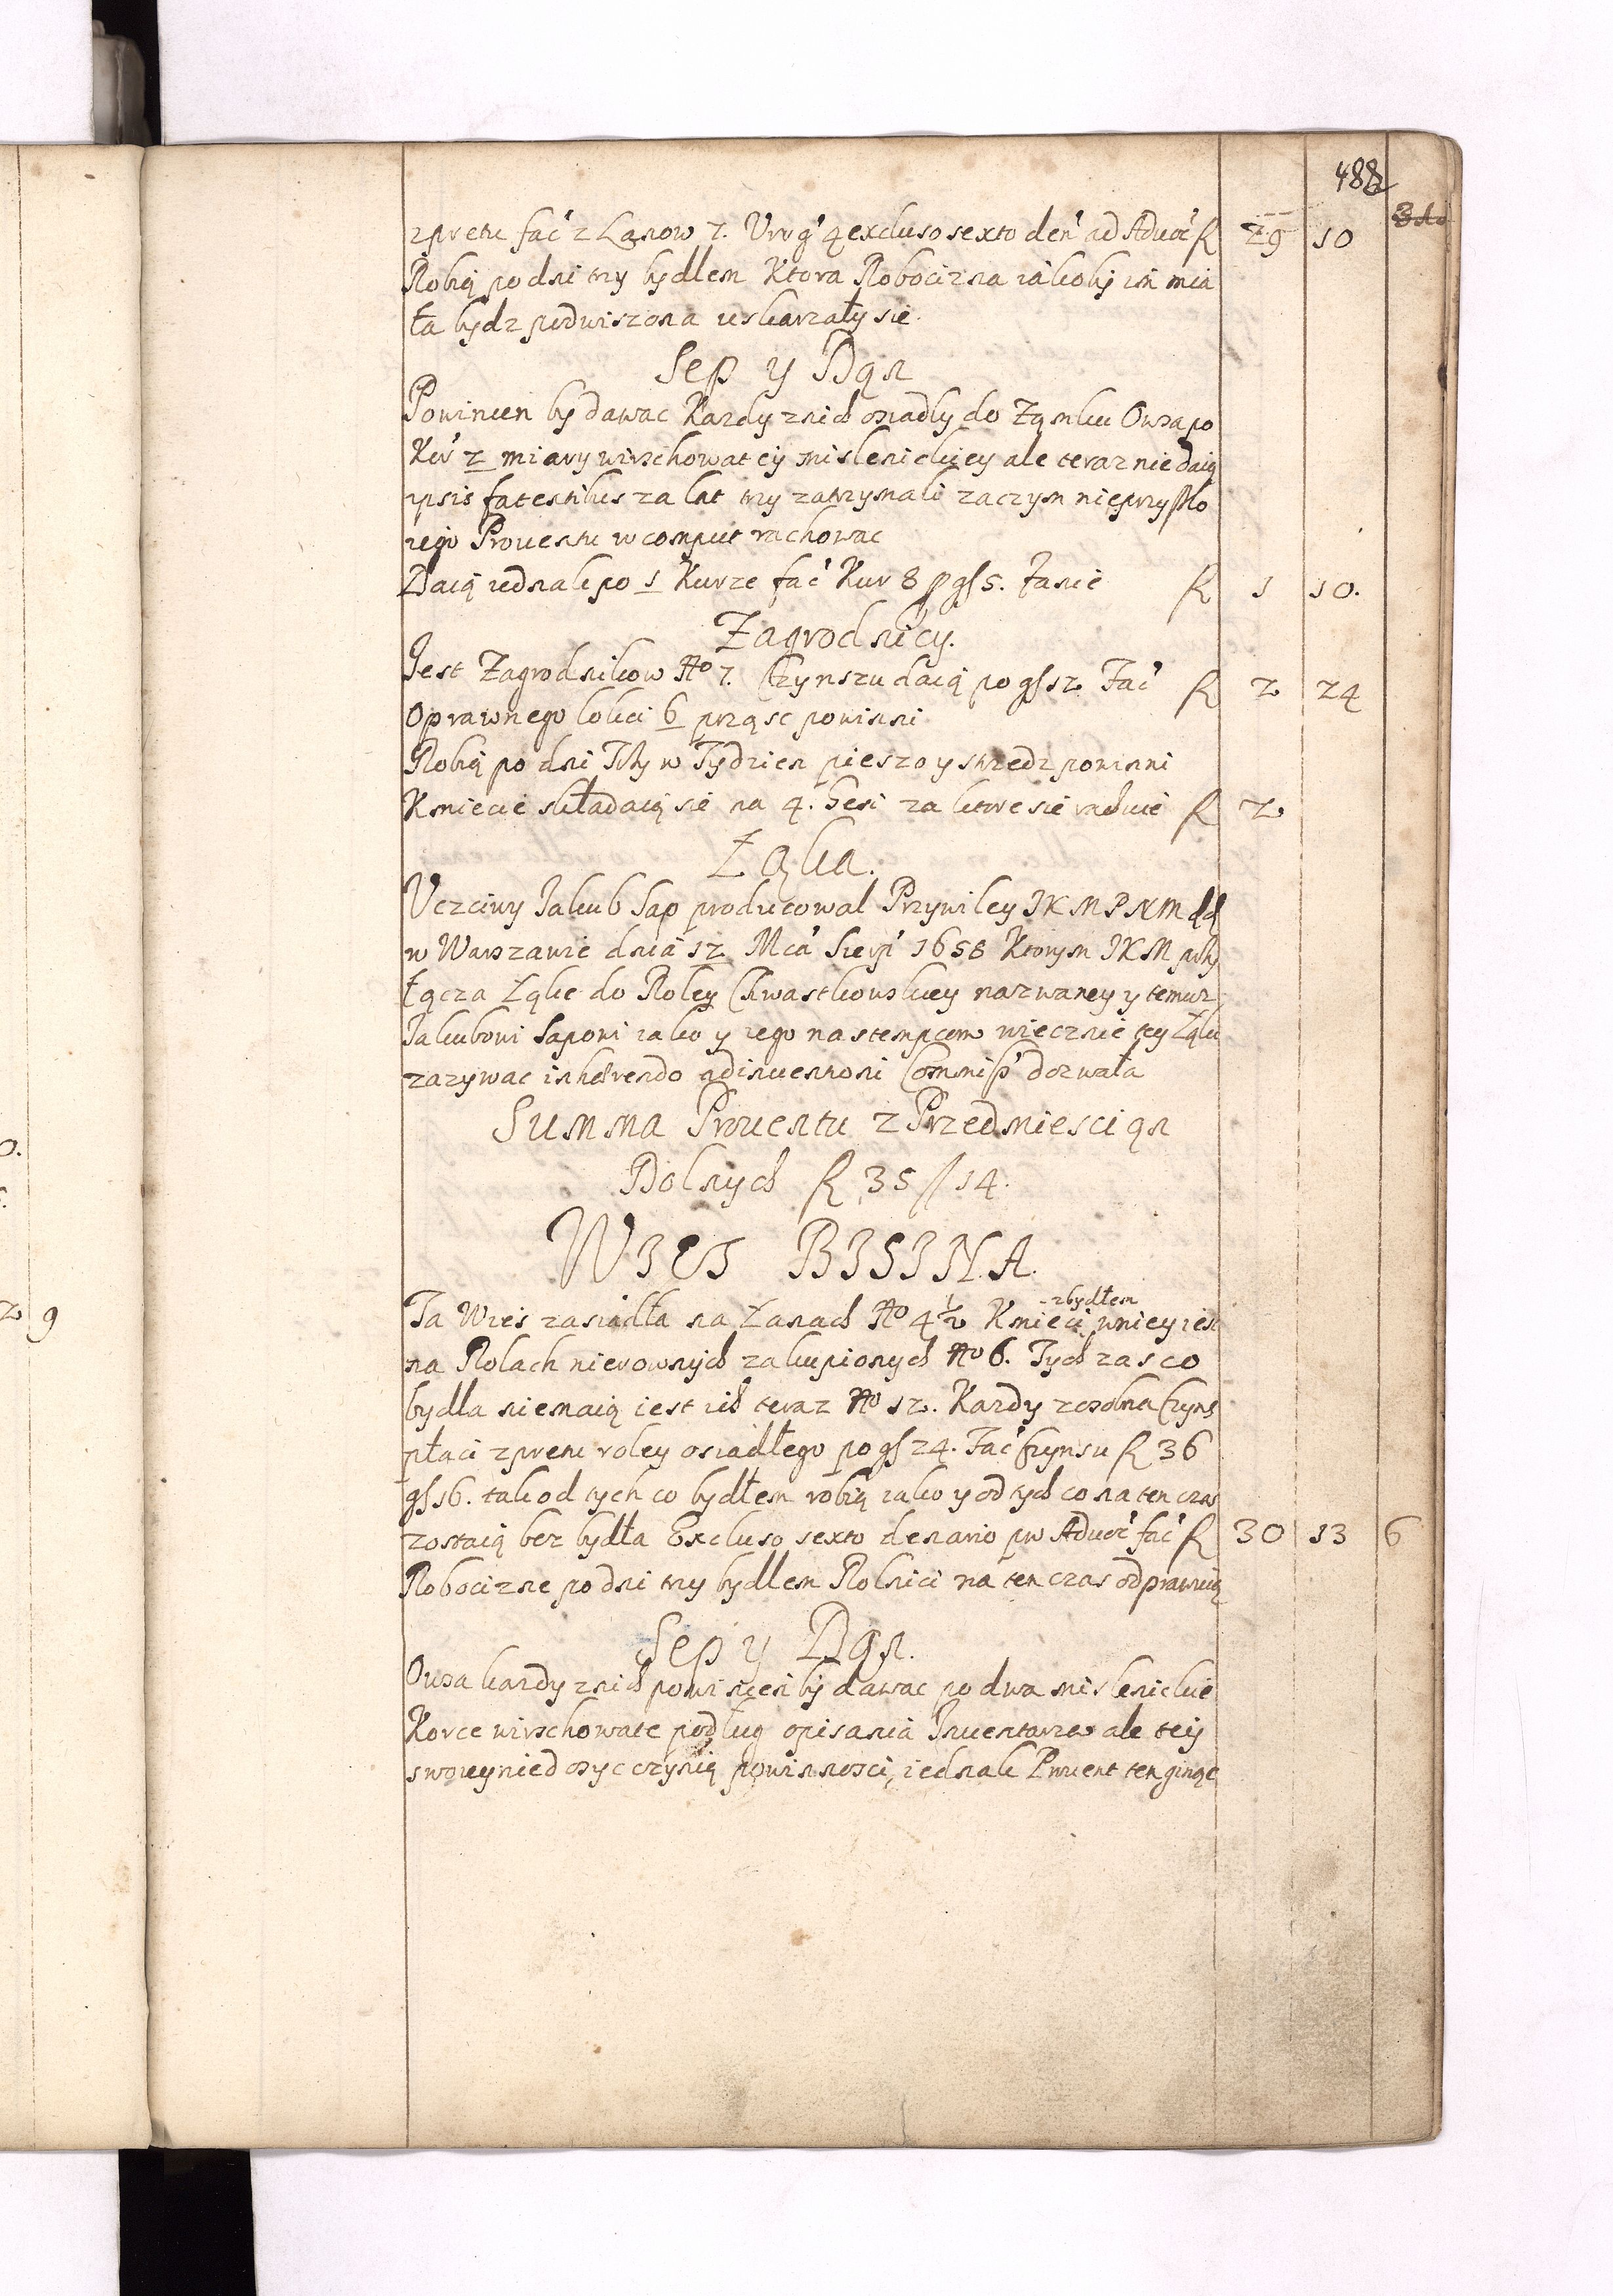 488
zpretu fac' z Lanow 7. Urŕ g' 4 excluso sexto den' ad Advoc' R 29 10
Robią po dni trzy bydłem Ktora Robocizna iakoby im mia
ła bydz podwiszona uskarzały się.
Sep y Dan
Powinien by dawac Kazdy z nich osiadły do Zamku Owsa po
Kor' 2 miary wirzchowatey mislenickiey ale teraz nie daią
ipsis fatentibus za lat trzy zatrzymali zaczym nieprzyszło
tego Proventu w comput rachowac
Daią iednak po 1 Kurze fac' Kur 8 p gſ 5. facit R 1 10.
Zagrodnicy.
Jest Zagrodnikow No 7. Czynszu daią po gſ 12 Fac' R 2 24
Oprawnego lokci 6 prząsc powinni
Robią po dni Trzy w Tydzien pieszo y strzedz powinni
Kmiecie składaią się na 4. Gesi za ktore się rachuie R 2
Łąka.
Uczciwy Jakub Sap producował Przywiley JKMPNM dd
w Warszawie dnia 12 Mca' Sierp' 1658 Ktorym JKM przy
łącza Łąke do Roley Chwastkowskiey nazwaney y temuz
Jakubowi Sapowi iako y iego nastempcom wiecznie tey Łąki
zazywac inhærendo adinventioni Commiss' dozwala
Summa Proventu z Przedmiescian
Dolnych R 35 // 14.
WIES BISINA.
Ta Wies zasiadła na Łanach No 4 1/2 Kmieci zbydłem wniey iest
na Rolach nierownych zakupionych No 6. Tych zas co
bydła niemaią iest ich teraz No 12. Kazdy z osobna Czynsz
płaci zpretu roley osiadłego po gſ 24. Fac' Czynsu R 36
gſ 16. tak od tych co bydłem robią iako y od tych co na ten czas
zostaią bez bydła Excluso sexto denario pro Advoc' fac' R 30 13 6
Robocizne po dni trzy bydłem Rolnici na ten czas odprawuią
Sep y Dan.
Owsa kazdy z nich powinien by dawac po dwa mislenickie
Korce wirzchowate podług opisania Inventarza ale teij
swoiey niedosyc czynią powinnosci, iednak Provent ten ginąc
2 9